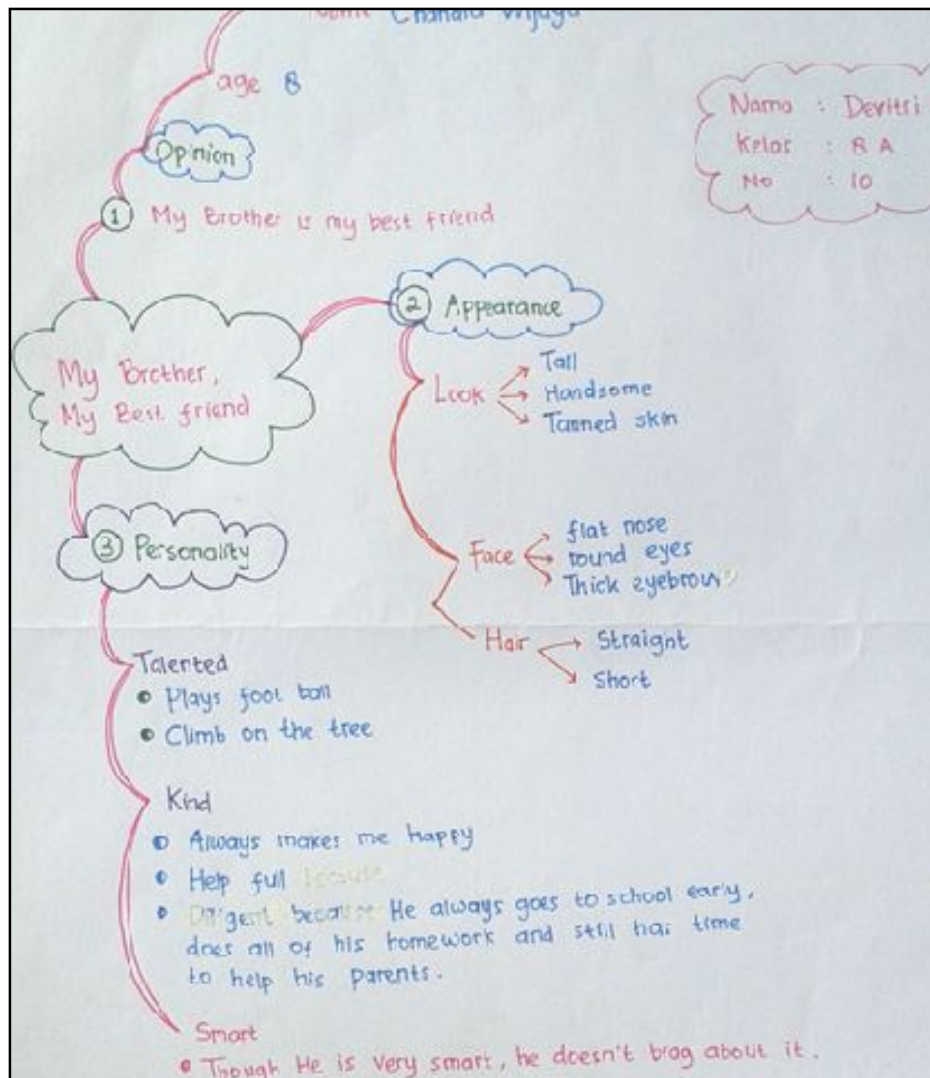 Chanara Wijaya
age 8
Nama : Devitri
Kelas : 8 A
No : 10
Opinion
1 My Brother is my best friend
2 Appearance
My Brother,
My Best friend
Look
Tall
Handsome
Tanned skin
3 Personality
Face
flat nose
round eyes
Thick eyebrow
Hair
Straight
Short
Talented
Plays foot ball
Climb on the tree
Kind
Always makes me happy
Help full
Diligent because He always goes to school early,
does all of his homework and still has time
to help his parents.
Smart
Though He is very smart, he doesn't brag about it.